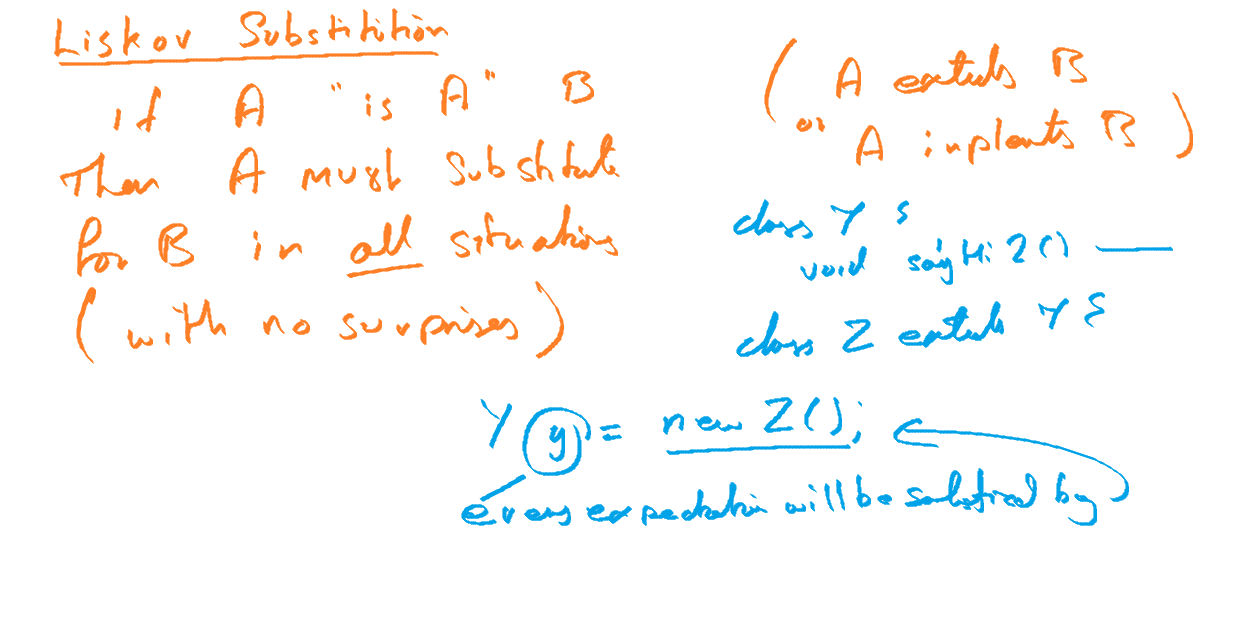 Liskov Substitution
if A "is A" B
Then A must substitute
for B in all situations
(with no surprises)
(A extends B
or A implements B)
class Y {
void sayHi2()
class Z extends Y {
Y y = new Z();
every expectation will be satisfied by